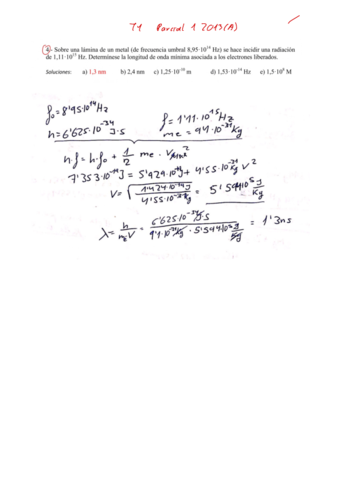 T1 Parcial 1 2013(A)
2.- Sobre una lámina de un metal (de frecuencia umbral 8,95·10¹⁴ Hz) se hace incidir una radiación
de 1,11·10¹⁵ Hz. Determínese la longitud de onda mínima asociada a los electrones liberados.
Soluciones: a) 1,3 nm b) 2,4 nm c) 1,25·10⁻¹⁰ m d) 1,53·10⁻¹⁴ Hz e) 1,5·10⁶ M
f₀=8'95·10¹⁴Hz f=1'11·10¹⁵Hz
h=6'625·10⁻³⁴ J·S me=9'1·10⁻³¹Kg
h·f=h·f₀+ 1/2 me·V²
7'353·10⁻¹⁹J = 5'929·10⁻¹⁹J + 4'55·10⁻³¹Kg V²
V=√(1'424·10⁻¹⁹J / 4'55·10⁻³¹Kg) = 5'594·10⁵ J/Kg
λ= h/(me V) = 6'625·10⁻³⁴J·S / (9'1·10⁻³¹Kg · 5'594·10⁵ J/Kg) = 1'3ns